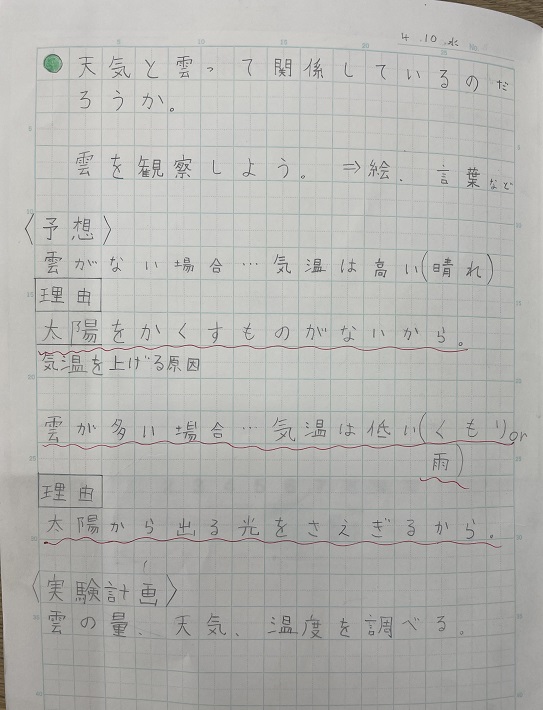 4.10 水
天気と雲って関係しているのだ
ろうか。
雲を観察しよう。⇒絵、言葉など
〈予想〉
雲がない場合…気温は高い(晴れ)
理由
太陽をかくすものがないから。
気温を上げる原因
雲が多い場合…気温は低い(くもりor
雨)
理由
太陽から出る光をさえぎるから。
〈実験計画〉
雲の量、天気、温度を調べる。